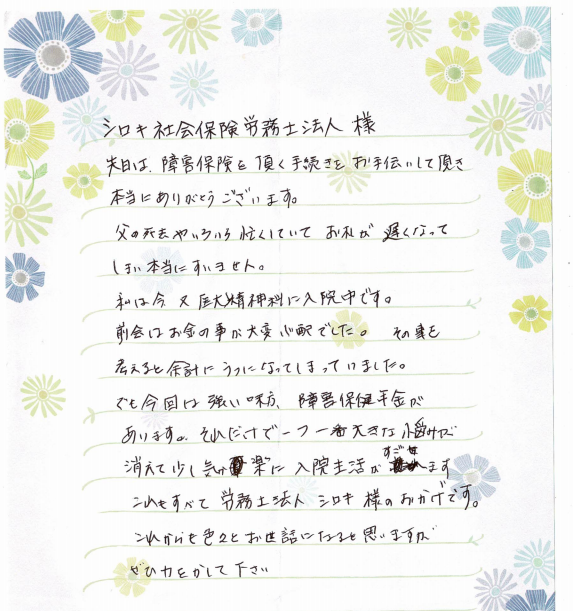 シロキ社会保険労務士法人 様
先日は、障害保険を頂く手続きをお手伝いして頂き
本当にありがとうございます。
父の死去やいろいろ忙しくしていて お礼が 遅くなって
しまい本当にすいません。
私は今 又 医大精神科に入院中です。
前会はお金の事が大変心配でした。 その事を
考えると余計にうつになってしまっていました。
でも今回は 強い味方、障害保健年金が
あります。それだけで一つ一番大きな 悩みが
消えて少し気が楽に 入院生活が すごせます
これもすべて 労務士法人 シロキ 様のおかげです。
これからも色々とお世話になると思いますが
ぜひ力をかして下さい